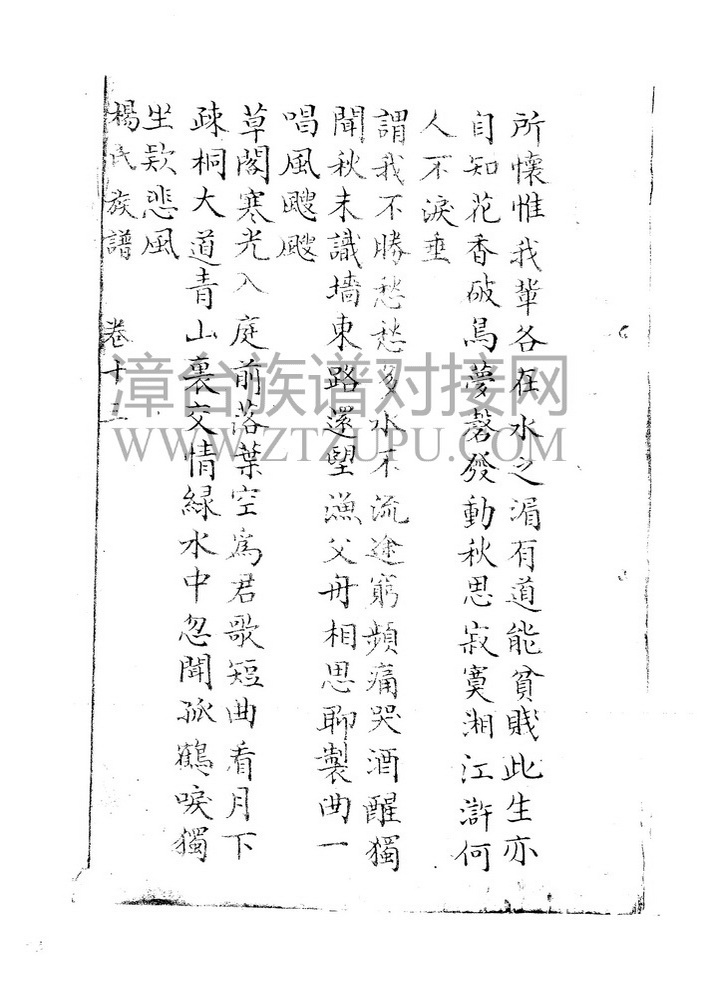 所懷惟我輩各在水之湄有道能貧賎此生亦
自知花香破鳥夢磬發動秋思寂寞湘江滸何
人不淚垂
謂我不勝愁愁多水不流途窮頻痛哭酒醒獨
聞秋未識墻東路還望漁父舟相思聊製曲一
唱風颼颼
草閣寒光入庭前落葉空為君歌短曲看月下
疎桐大道青山裏交情緑水中忽聞孤鶴唳獨
坐欵悲風
楊氏族譜 卷十三
漳台族谱对接网
WWW.ZTZUPU.COM